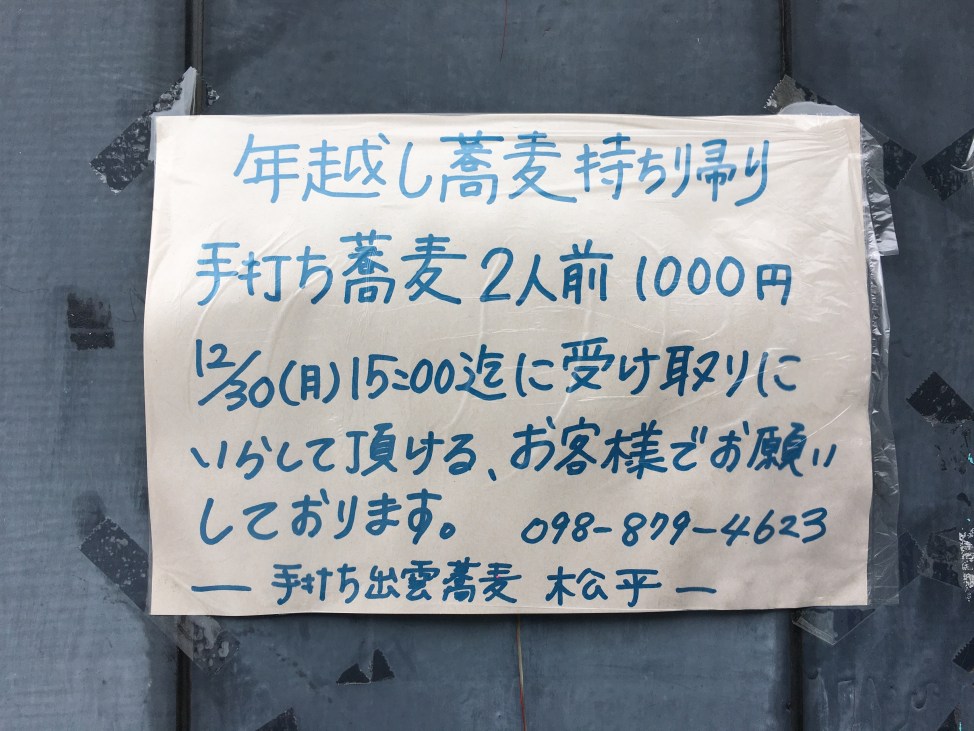 年越し蕎麦持ち帰り
手打ち蕎麦2人前 1000円
12/30(月)15:00迄に受け取りに
いらして頂ける、お客様でお願い
しております。 098-879-4623
— 手打ち出雲蕎麦 松平 —